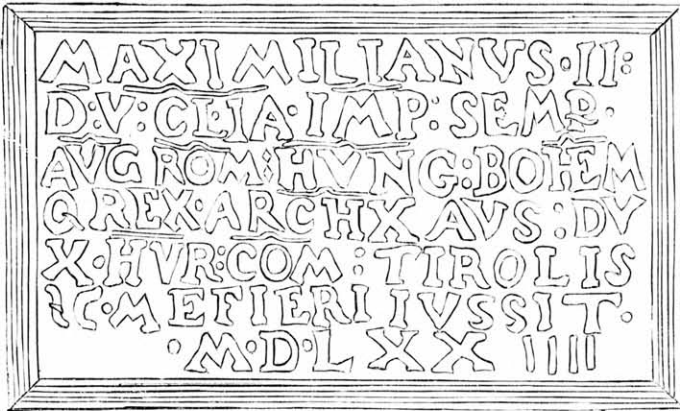 MAXIMILIANVS·II:
D:V:CL:IA·IMP:SEMP·
AVG ROM:HVNG:BOHEM
Q REX·ARCHX AVS:DV
X·HVR:COM:TIROLIS
IC·MEFIERI IVSSIT·
·M·D·LXX IIII